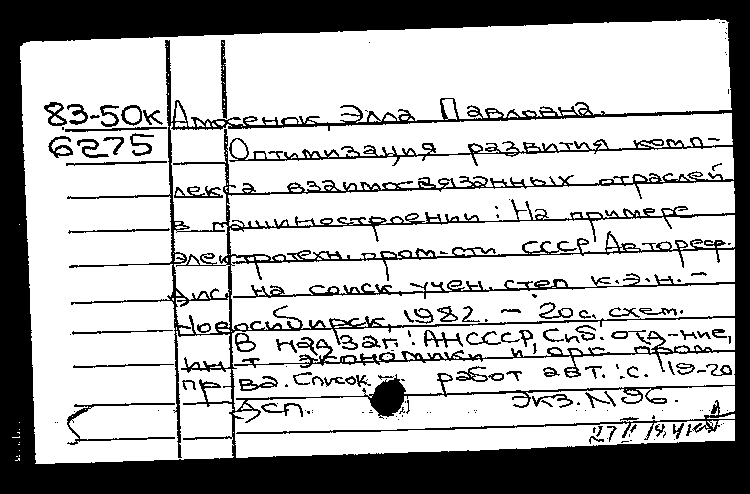 83-50к Амосенок, Элла Павловна.
6275 Оптимизация развития комп-
лекса взаимосвязанных отраслей
в машиностроении: На примере
электротехн. пром-сти СССР: Автореф.
дис. на соиск. учен. степ к.э.н. -
Новосибирск, 1982. - 20 с., схем.
В надзаг.: АН СССР, Сиб. отд-ние,
ин-т экономики и орг. пром.
пр-ва. Список работ авт.: с. 19-20
Дсп. Экз. N 96.
27 II